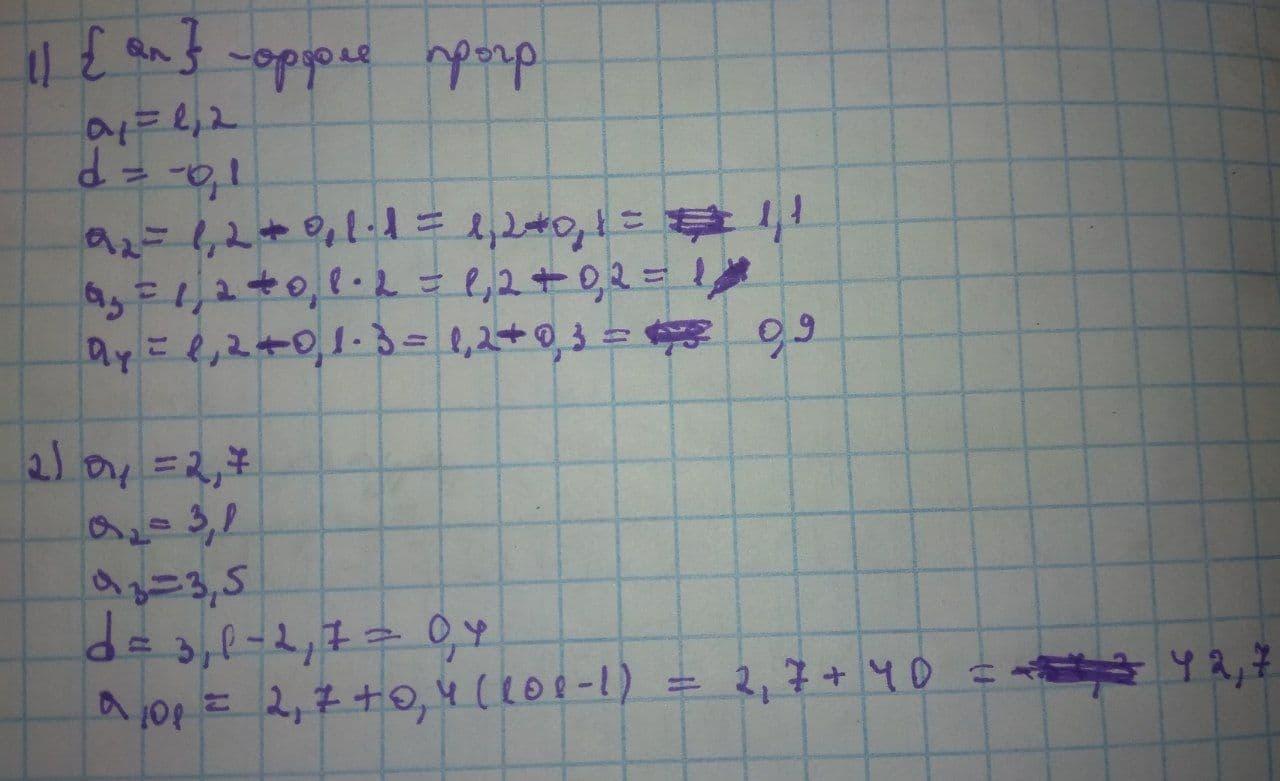 1) {an} - прогр
a1 = 1,2
d = -0,1
a2 = 1,2 + 0,1 · 1 = 1,2 + 0,1 = 1,1
a3 = 1,2 + 0,1 · 2 = 1,2 + 0,2 = 1
a4 = 1,2 + 0,1 · 3 = 1,2 + 0,3 = 0,9
2) a1 = 2,7
a2 = 3,1
a3 = 3,5
d = 3,1 - 2,7 = 0,4
a101 = 2,7 + 0,4 (101 - 1) = 2,7 + 40 = 42,7